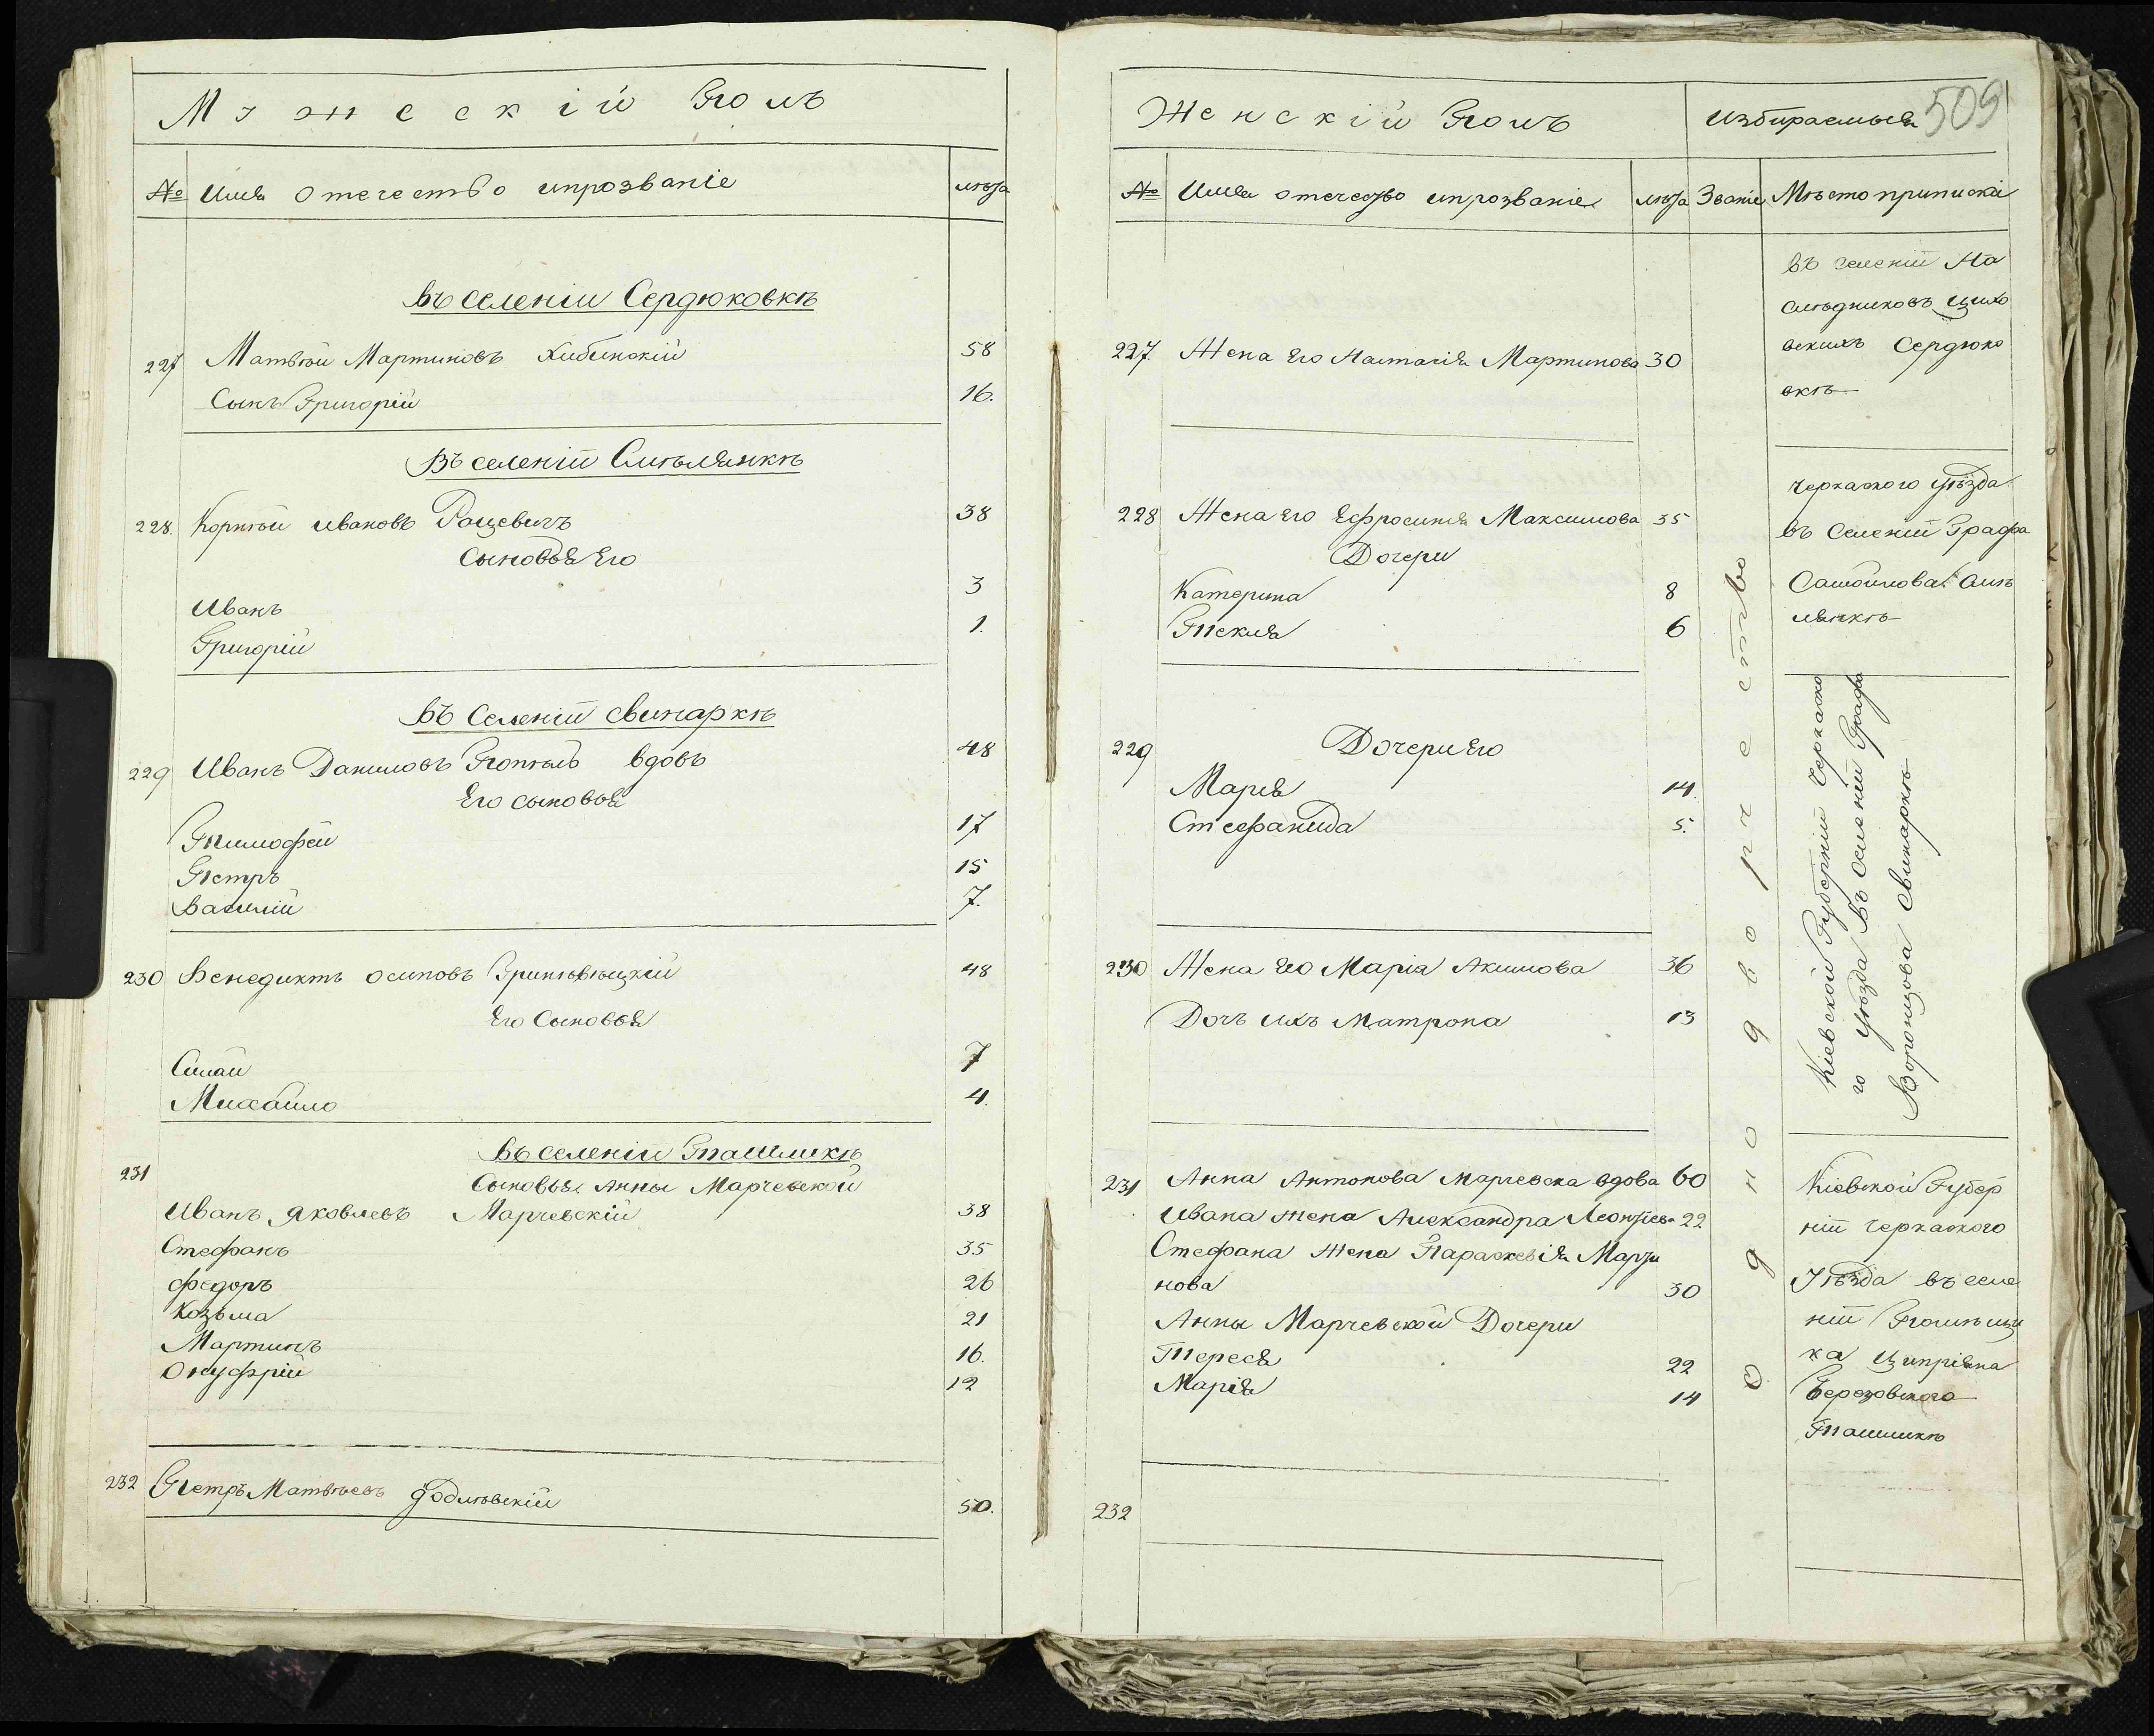 Мужескій Полъ
№ Имя отечество ипрозваніе лѣта
въ селеніи Сердюковкѣ
227 Матвѣй Мартиновъ Хибинскій 58
Сынъ Григорій 16.
Въ селеніи Смѣлянкѣ
228. Корнѣй ивановъ Рацевичъ 38
Сыновья Его
Иванъ 3
Григорій 1.
Въ Селеніи свинаркѣ
229 Иванъ Даниловъ вдовъ 48
Его сыновья
Тимофей 17
Петръ 15
Василій 7.
230 Венедиктъ осиповъ 48
Его Сыновья
7
Михайло 4.
Въ селеніи Ташликѣ
231
Сыновья Анны Марчевской
Иванъ Яковлевъ Марчевскій 38
Стефанъ 35
Федоръ 26
Козьма 21
Мартинъ 16.
Онуфрій 12
232 Петръ Матвѣевъ 50.
Женскій Полъ Избираемыя 509
№ Имя отечество ипрозваніе лѣта Званіе Мѣсто приписки
227. Жена Его Настасія Мартинова 30
228 Жена Его Ефросинія Максимова 35
Дочери
Катерина 8
Текля 6
229 Дочери Его
Марія 14.
Стефанида 5.
230 Жена Его Марія Акимова 36
Дочь ихъ Матрона 13
231 Анна Антонова марчевска вдова 60
Ивана жена Александра Леонтіева 22
Стефана жена Параскевія Марти
нова 30
Анны Марчевской Дочери
Тереся 22
Марія 14
232
однодворчество
въ селеніи На
слѣдниковъ
Сердюко
вкѣ
Черкаского уѣзда
въ Селеніи Графа
Самойлова Смѣ
лянкѣ
Кіевской Губерніи Черкаско
го Уѣзда Въ Селеніи Графа
Воронцова Свинаркѣ
Кіевской Губер
ніи Черкаского
Уѣзда въ селе
ніи Помѣщи
ка Ципріяна
Березовского
Ташликѣ